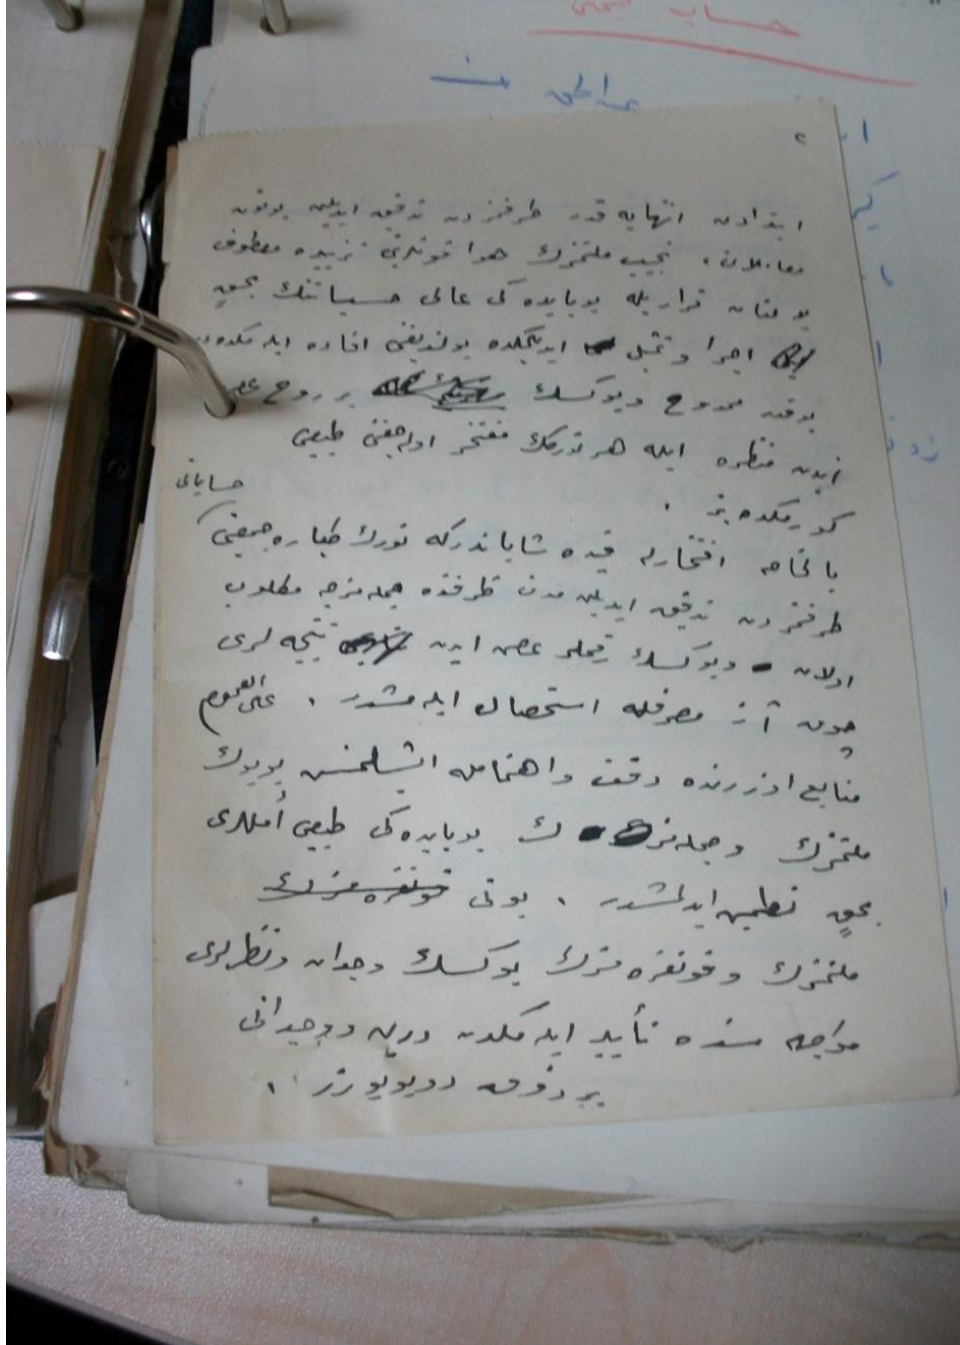 حساب
٢
ابتدادن انتهایه قدر طرفمزدن تدقیق ایدیلن بوتون
معاملاتك، نجیب ملتمزك هوا قوتلرینی تزییده معطوف
بولنان قراریله بوبابده کی عالی حسیاتنك بحقٍ
اجرا و تمثیل ایدیلمكده بولندیغنی افاده ایتمكده‌در
بوقدر ممدوح و یوكسك بر روح
ایدن منظره ایله هر توركك مفتخر اوله‌جغنی طبیعی
كورمكده‌یز .
حساباتی
بالخاصه افتخارله قیده شایاندركه تورك طیاره جمعیتی
طرفمزدن تدقیق ایدیلن مدت ظرفنده جمله‌مزجه مطلوب
اولان و یوكسك رقملر عرض ایدن نتیجه‌لری
چوق آز مصرفله استحصال ایتمشدر . علی العموم
منابع اوزرنده دقت و اهتمامله ایشلنمش بویوك
ملتمزك و جمله‌مزك بوبابده‌کی طبیعی أمللری
بحقٍ تطمین ایدلمشدر . بونی قونغره‌مزك
ملتمزك و قونغره‌مزك یوكسك وجدان و نظرلری
مواجهه‌سنده تأیید ایتمكدن درین و وجدانی
بر ذوق دویویورز .